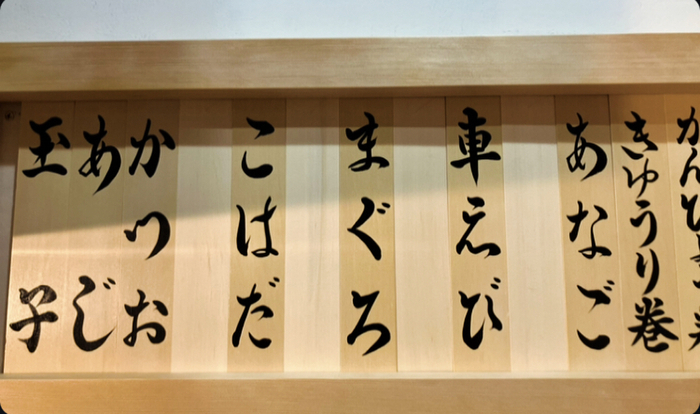 きゅうり巻
あなご
車えび
まぐろ
こはだ
かつお
あじ
玉子